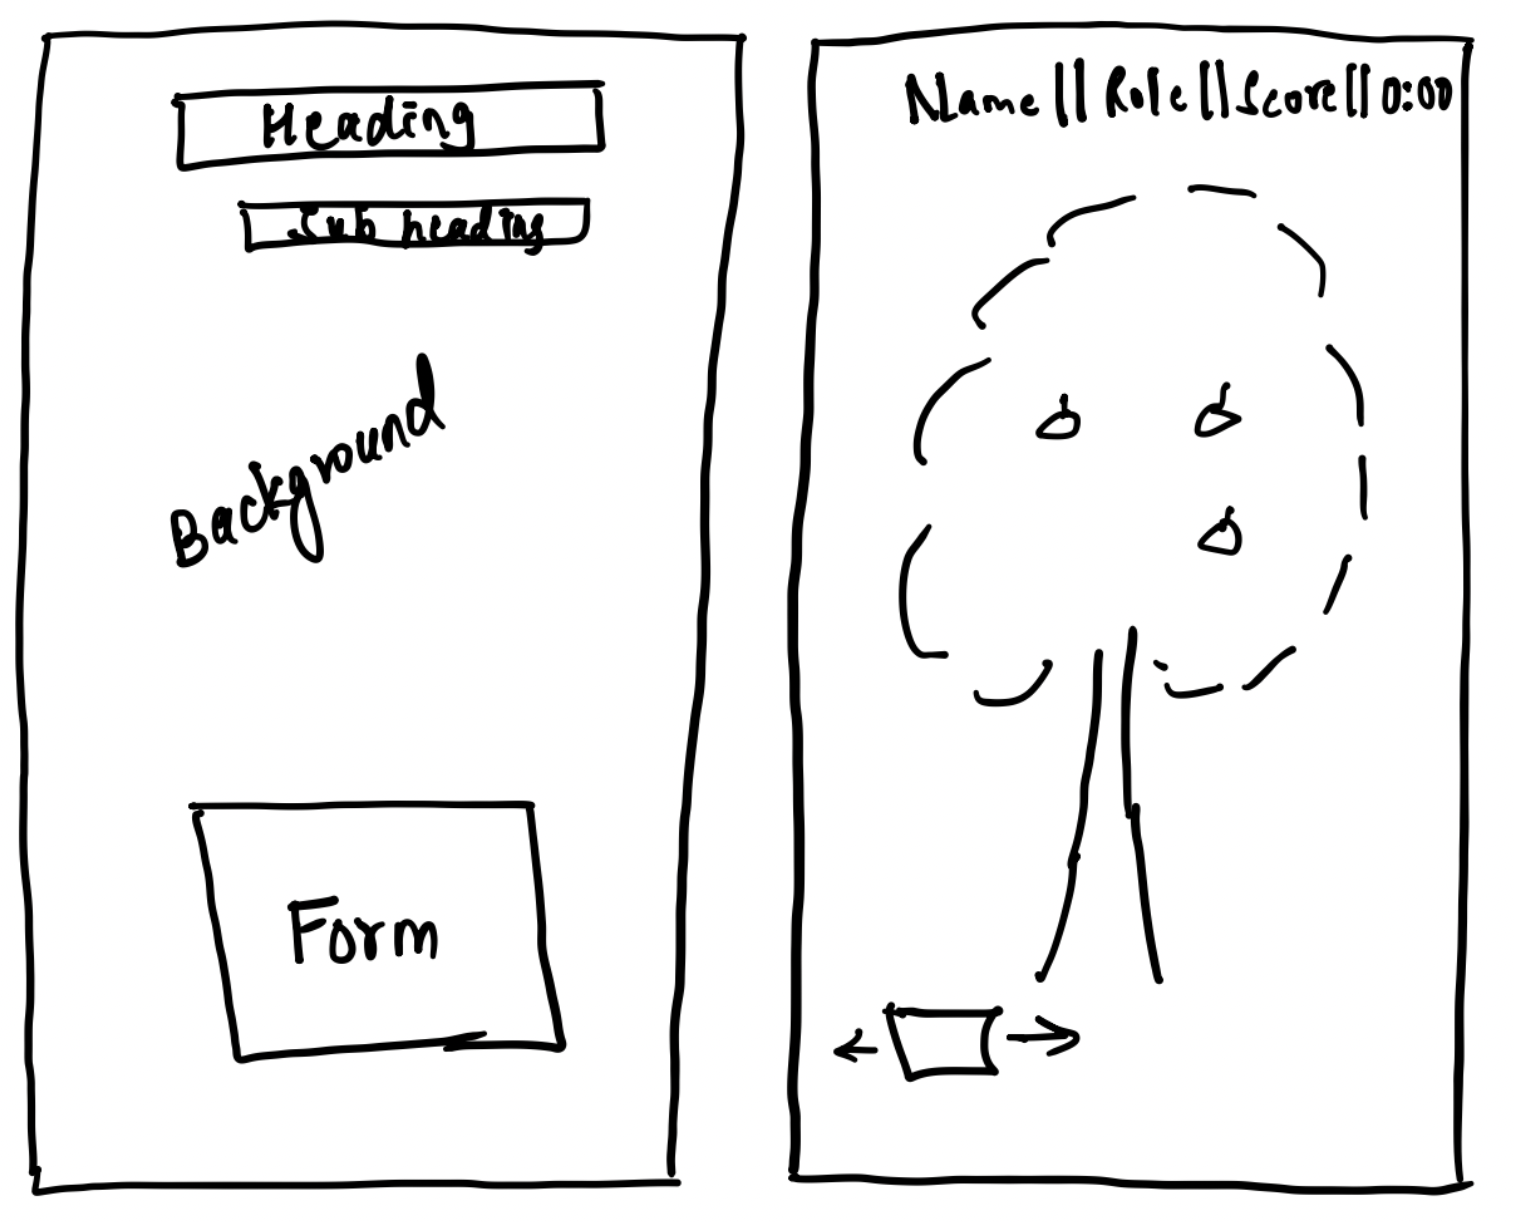 Heading
Sub heading
Background
Form
Name || Role || Score || 0:00